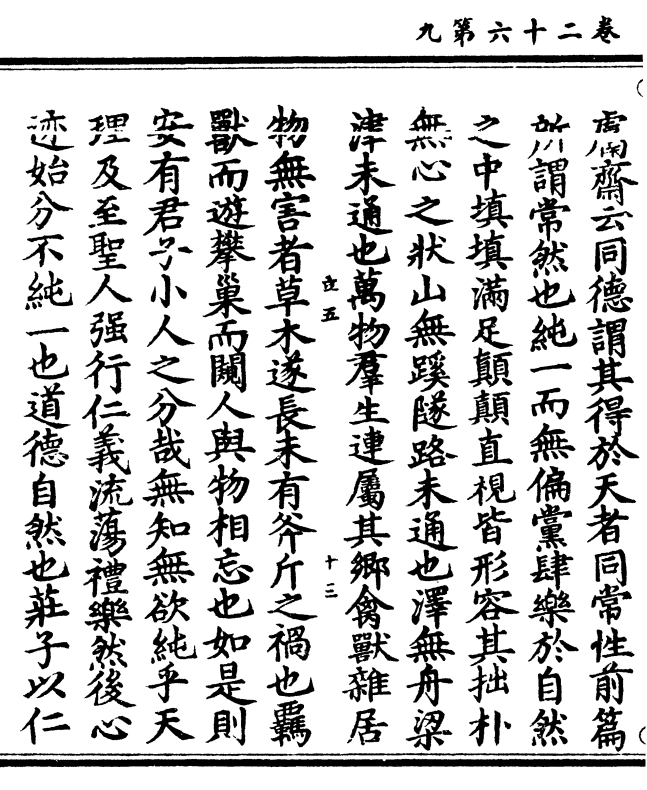 卷二十六第九
鬳齋云同德謂其得於天者同常性前篇
所謂常然也純一而無偏黨肆樂於自然
之中填填滿足顛顛直視皆形容其拙朴
無心之狀山無蹊隧路未通也澤無舟梁
津未通也萬物羣生連屬其鄉禽獸雜居
五 十三
物無害者草木遂長未有斧斤之禍也羈
獸而遊攀巢而闚人與物相忘也如是則
安有君子小人之分哉無知無欲純乎天
理及至聖人强行仁義流蕩禮樂然後心
迹始分不純一也道德自然也莊子以仁